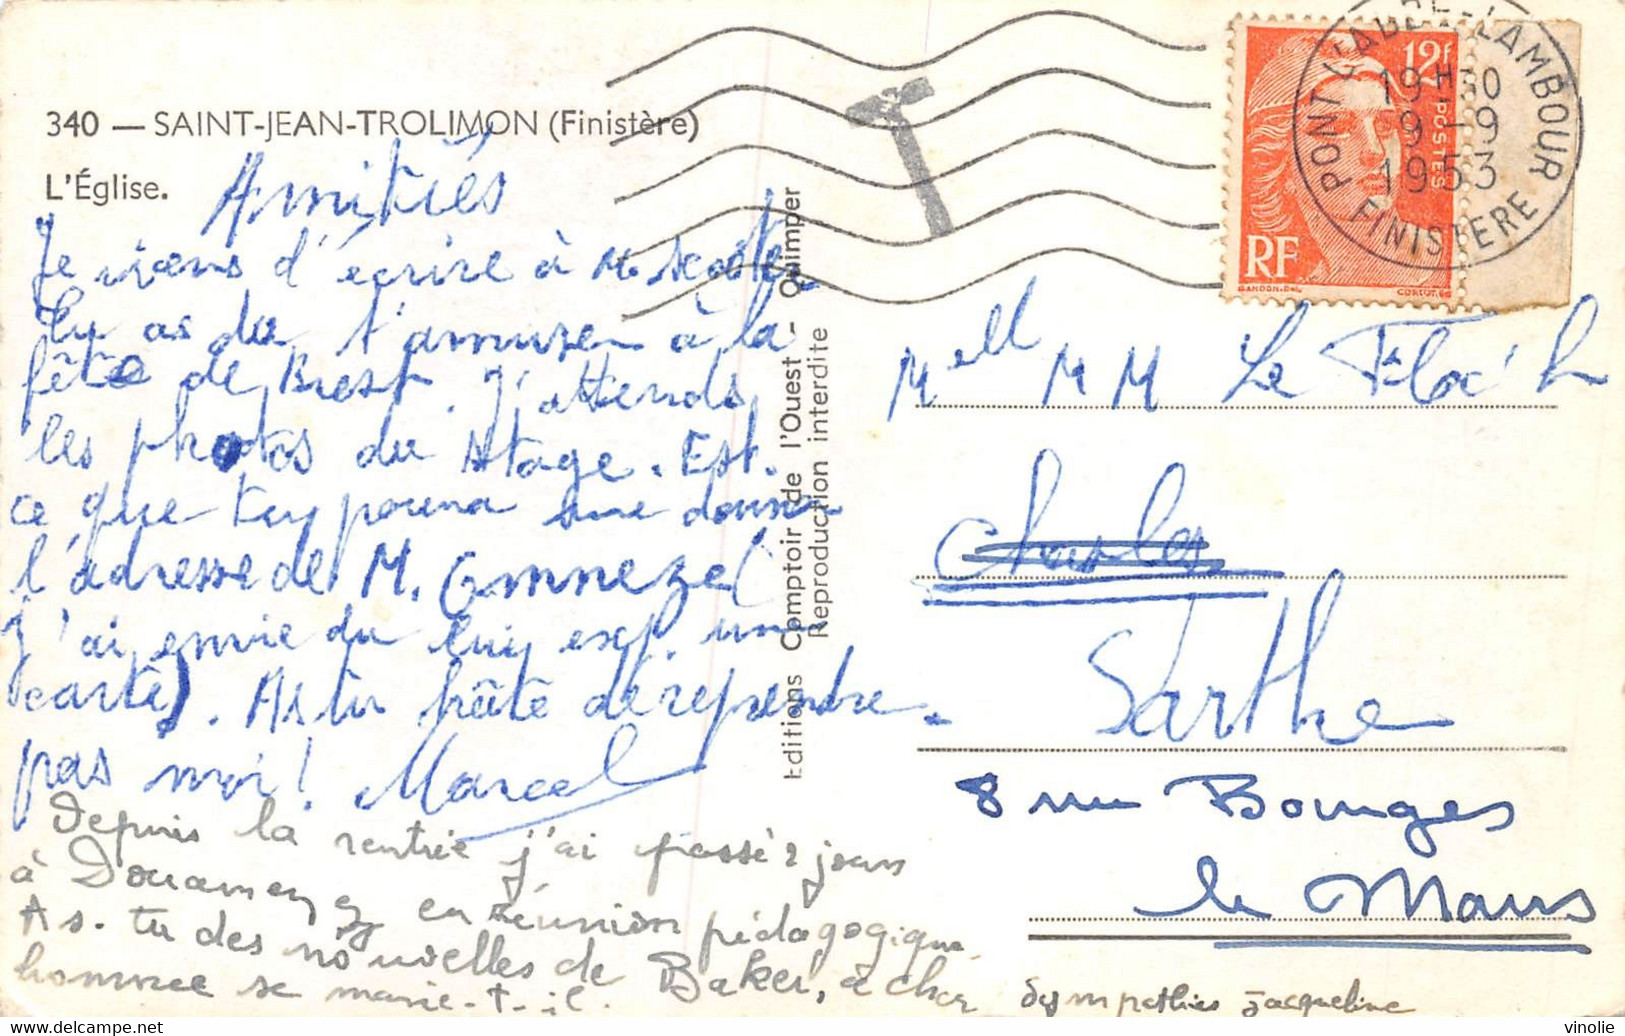 340 — SAINT-JEAN-TROLIMON (Finistère)
L'Église.
Amitiés
Je viens d'écrire à M.
Tu as du t'amuser à la
fête de Brest. J'attends
les photos du stage. Est.
ce que tu pourra me donner
l'adresse de M.
J'ai envie du luy exp. une
carte. As tu hâte de reprendre.
pas moi! Marcel
Depuis la rentrée j'ai passé 2 jours
à Douarnenez en réunion pédagogique
As. tu des nouvelles de Baker, ce cher
homme se marie-t-il
Sympathies Jacqueline
Editions Comptoir de l'Ouest - Quimper
Reproduction interdite
12f
POSTES
RF
GANDON
CORTOT
PONT L'ABBE-LAMBOUR
19H30
9-9
1953
FINISTERE
T
Mell M M Le Floc'h
Charles
Sarthe
8 rue Bourges
le Mans
vinolie